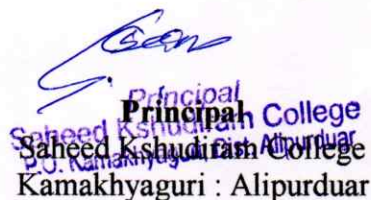 Principal
Saheed Kshudiram College
P.O. Kamakhyaguri Dist. Alipurduar
Principal
Saheed Kshudiram College
Kamakhyaguri : Alipurduar